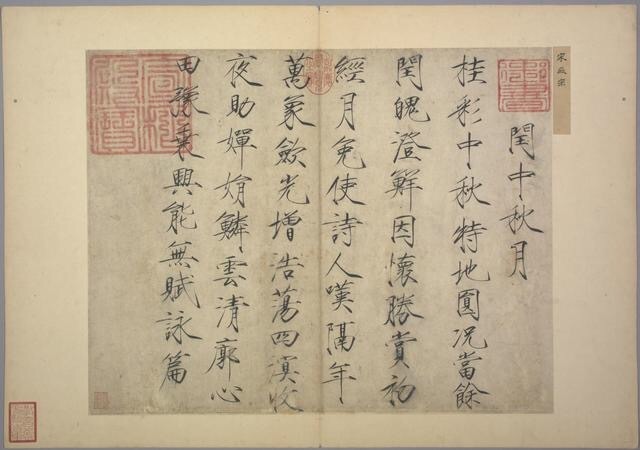 宋徽宗
御書
閏中秋月
桂彩中秋特地圓況當餘
閏魄澄鮮因懷勝賞初
經月免使詩人嘆隔年
萬象歛光增浩蕩四溟收
夜助嬋娟鱗雲清廓心
田豫乘興能無賦詠篇